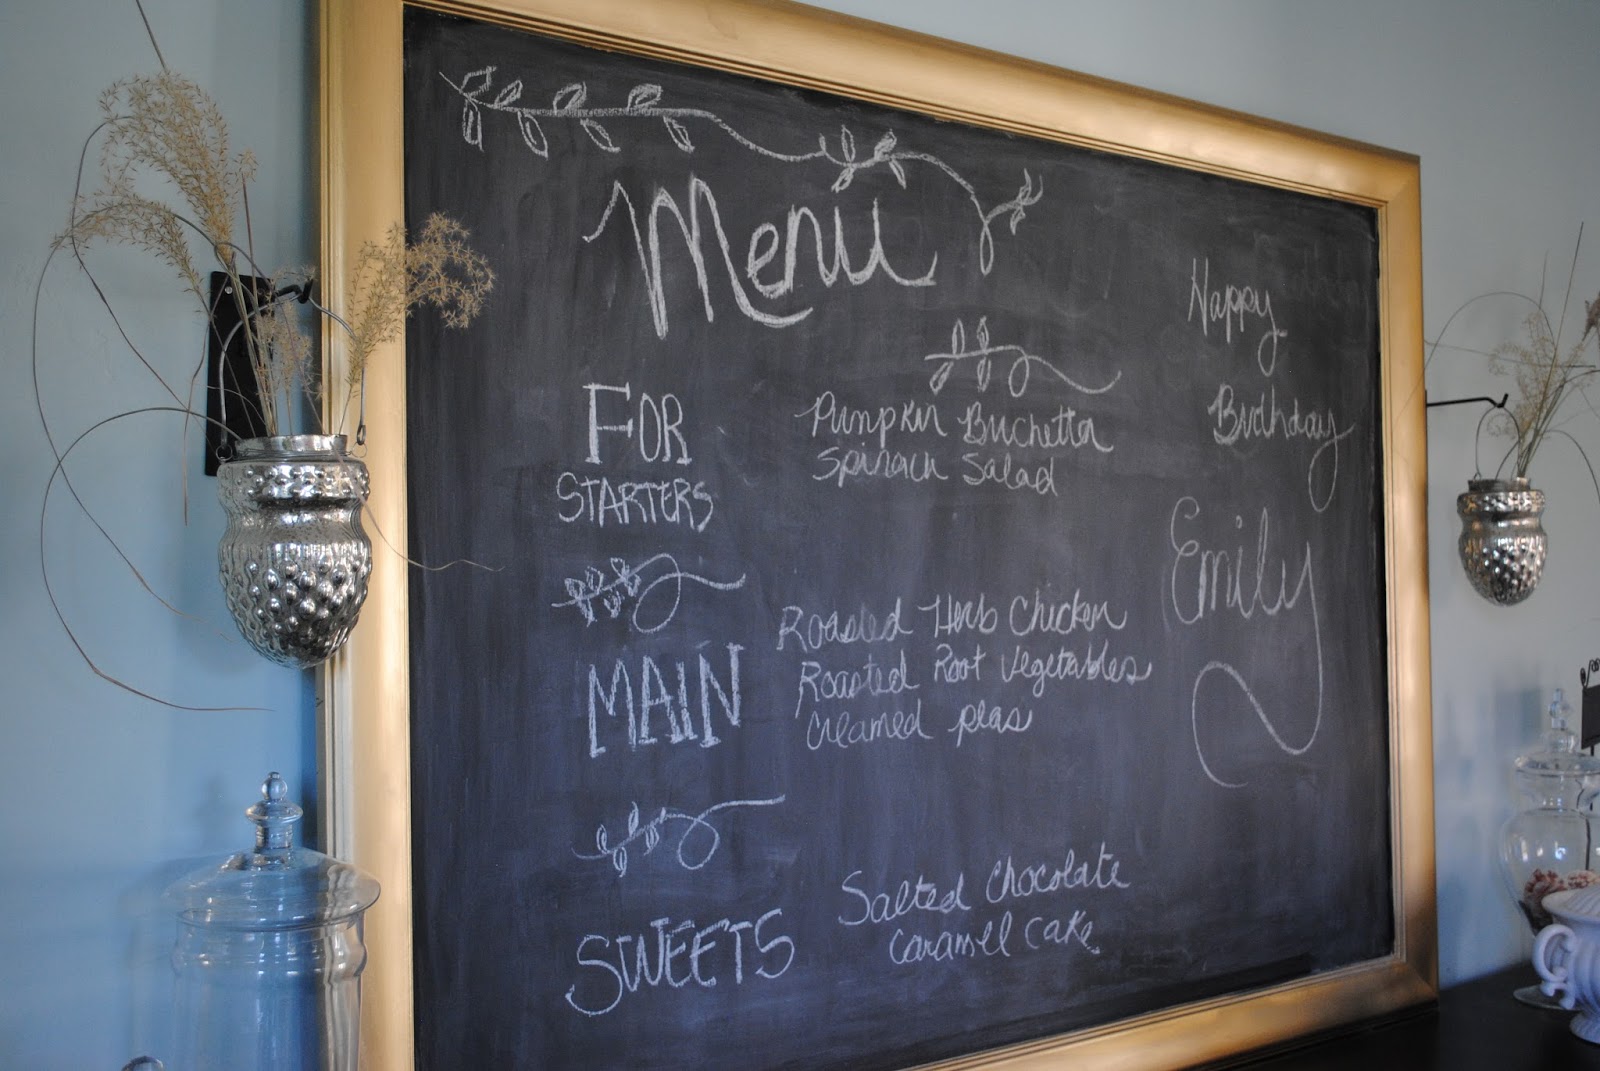 Menu
FOR
STARTERS
Pumpkin Buchetta
Spinach Salad
MAIN
Roasted Herb Chicken
Roasted Root Vegetables
Creamed peas
SWEETS
Salted Chocolate
Caramel Cake
Happy
Birthday
Emily